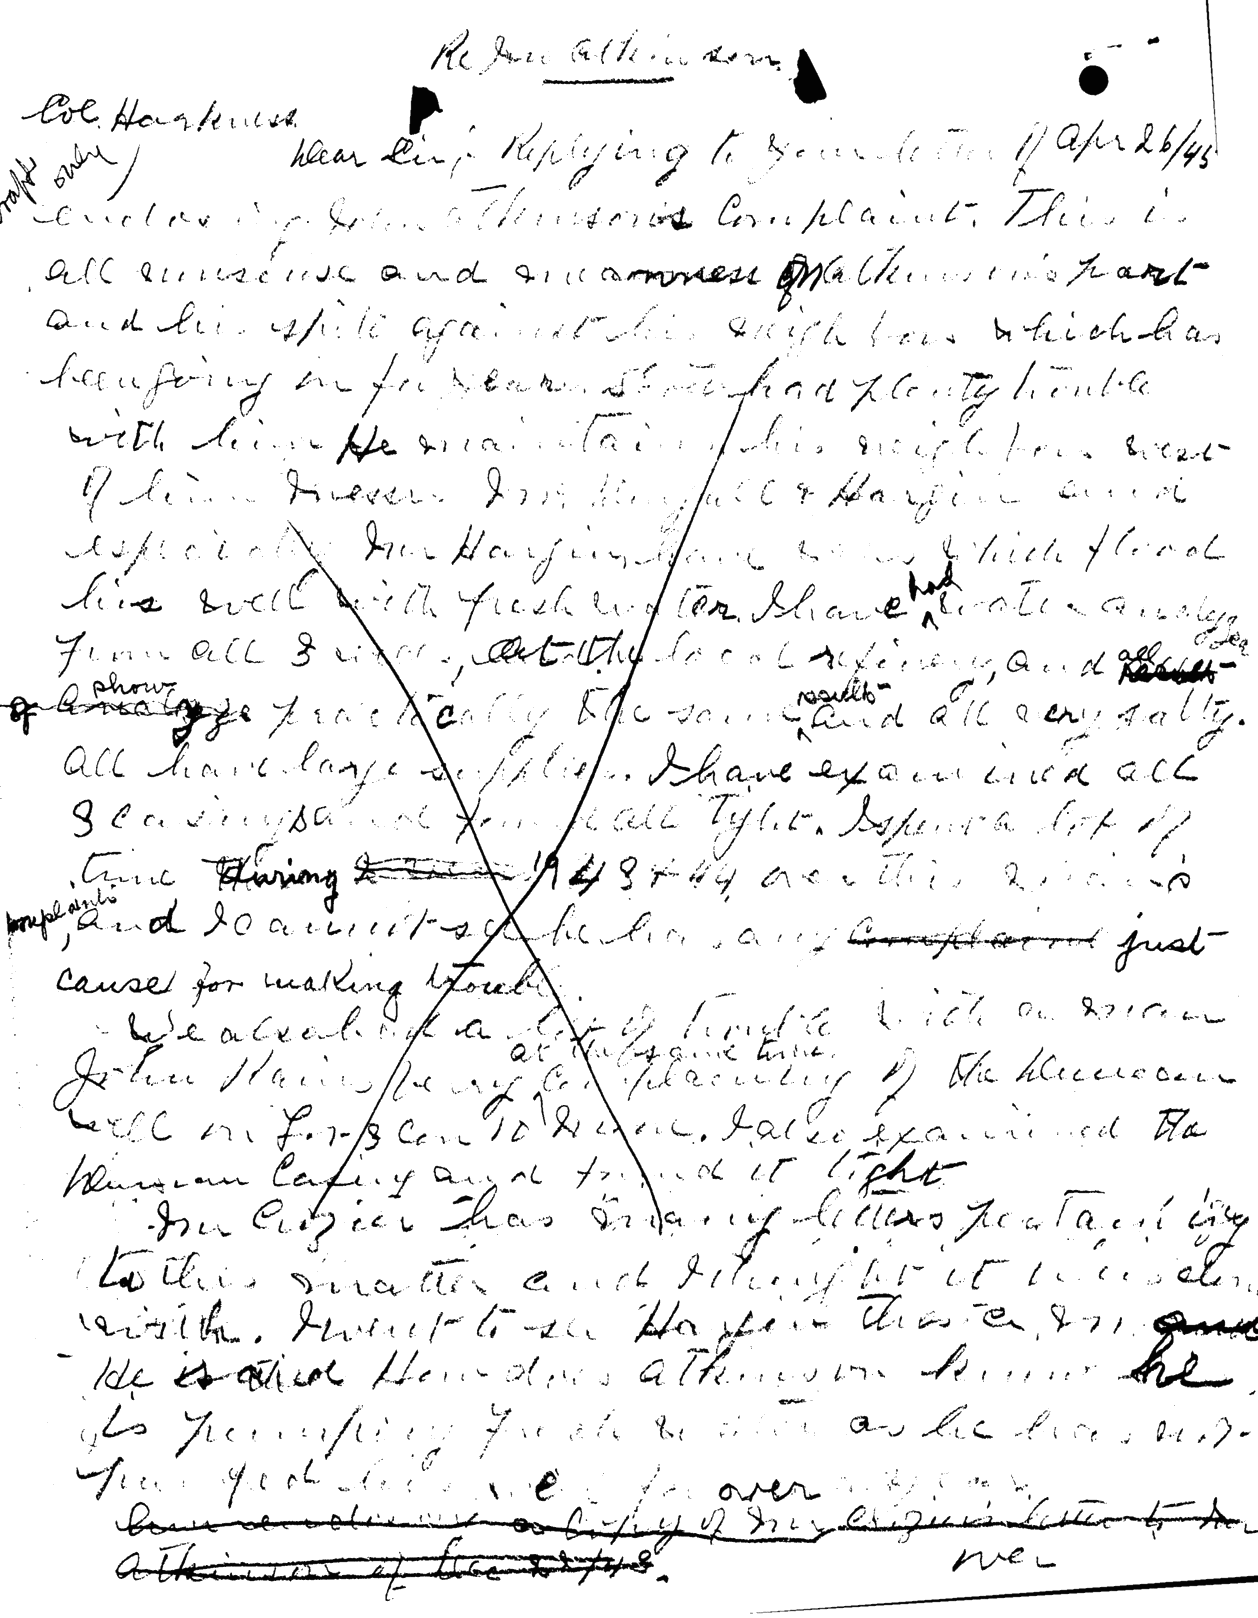 Re Jno Atkinson
Col. Harkness
Draft only
Dear Sir; Replying to your letter of Apr 26/45
enclosing John Atkinson's Complaint. This is
all nonsense and meanness on Atkinson's part
and his spite against his neighbors which has
been going on for years had plenty trouble
with him He maintains his neighbors west
of him Messrs & Hargin and
especially Mr Hargin have wells which flood
his well with fresh water. I have had water analyses
From all 3 wells, at the local refinery, and all results
of analyze show practically the same results and all very salty.
All have large supplies. I have examined all
3 casings and found all tight. I spent a lot of
time during 1943 & 44 over this man's
complaints, and I cannot see he has any complaint just
cause for making trouble.
We also had a lot of trouble with a man
at the same time
John complaining of the Duncan
well on Lot 3 Con 10 I also examined the
Duncan Casing and found it tight
Mr Crozier has many letters pertaining
to this matter and I thought it was done
with. I went to see Hargin and
He said How does Atkinson know he
is pumping fresh water as he has not
pumped his well for over a year.
am enclosing a Copy of Mr Crozier's letter to Mr
Atkinson of Dec 22/43.
over